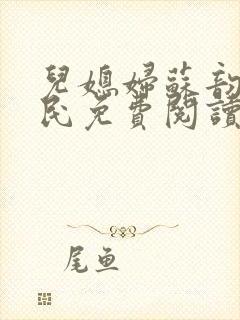 兒媳婦蘇韵
民免費閱讀
尾魚